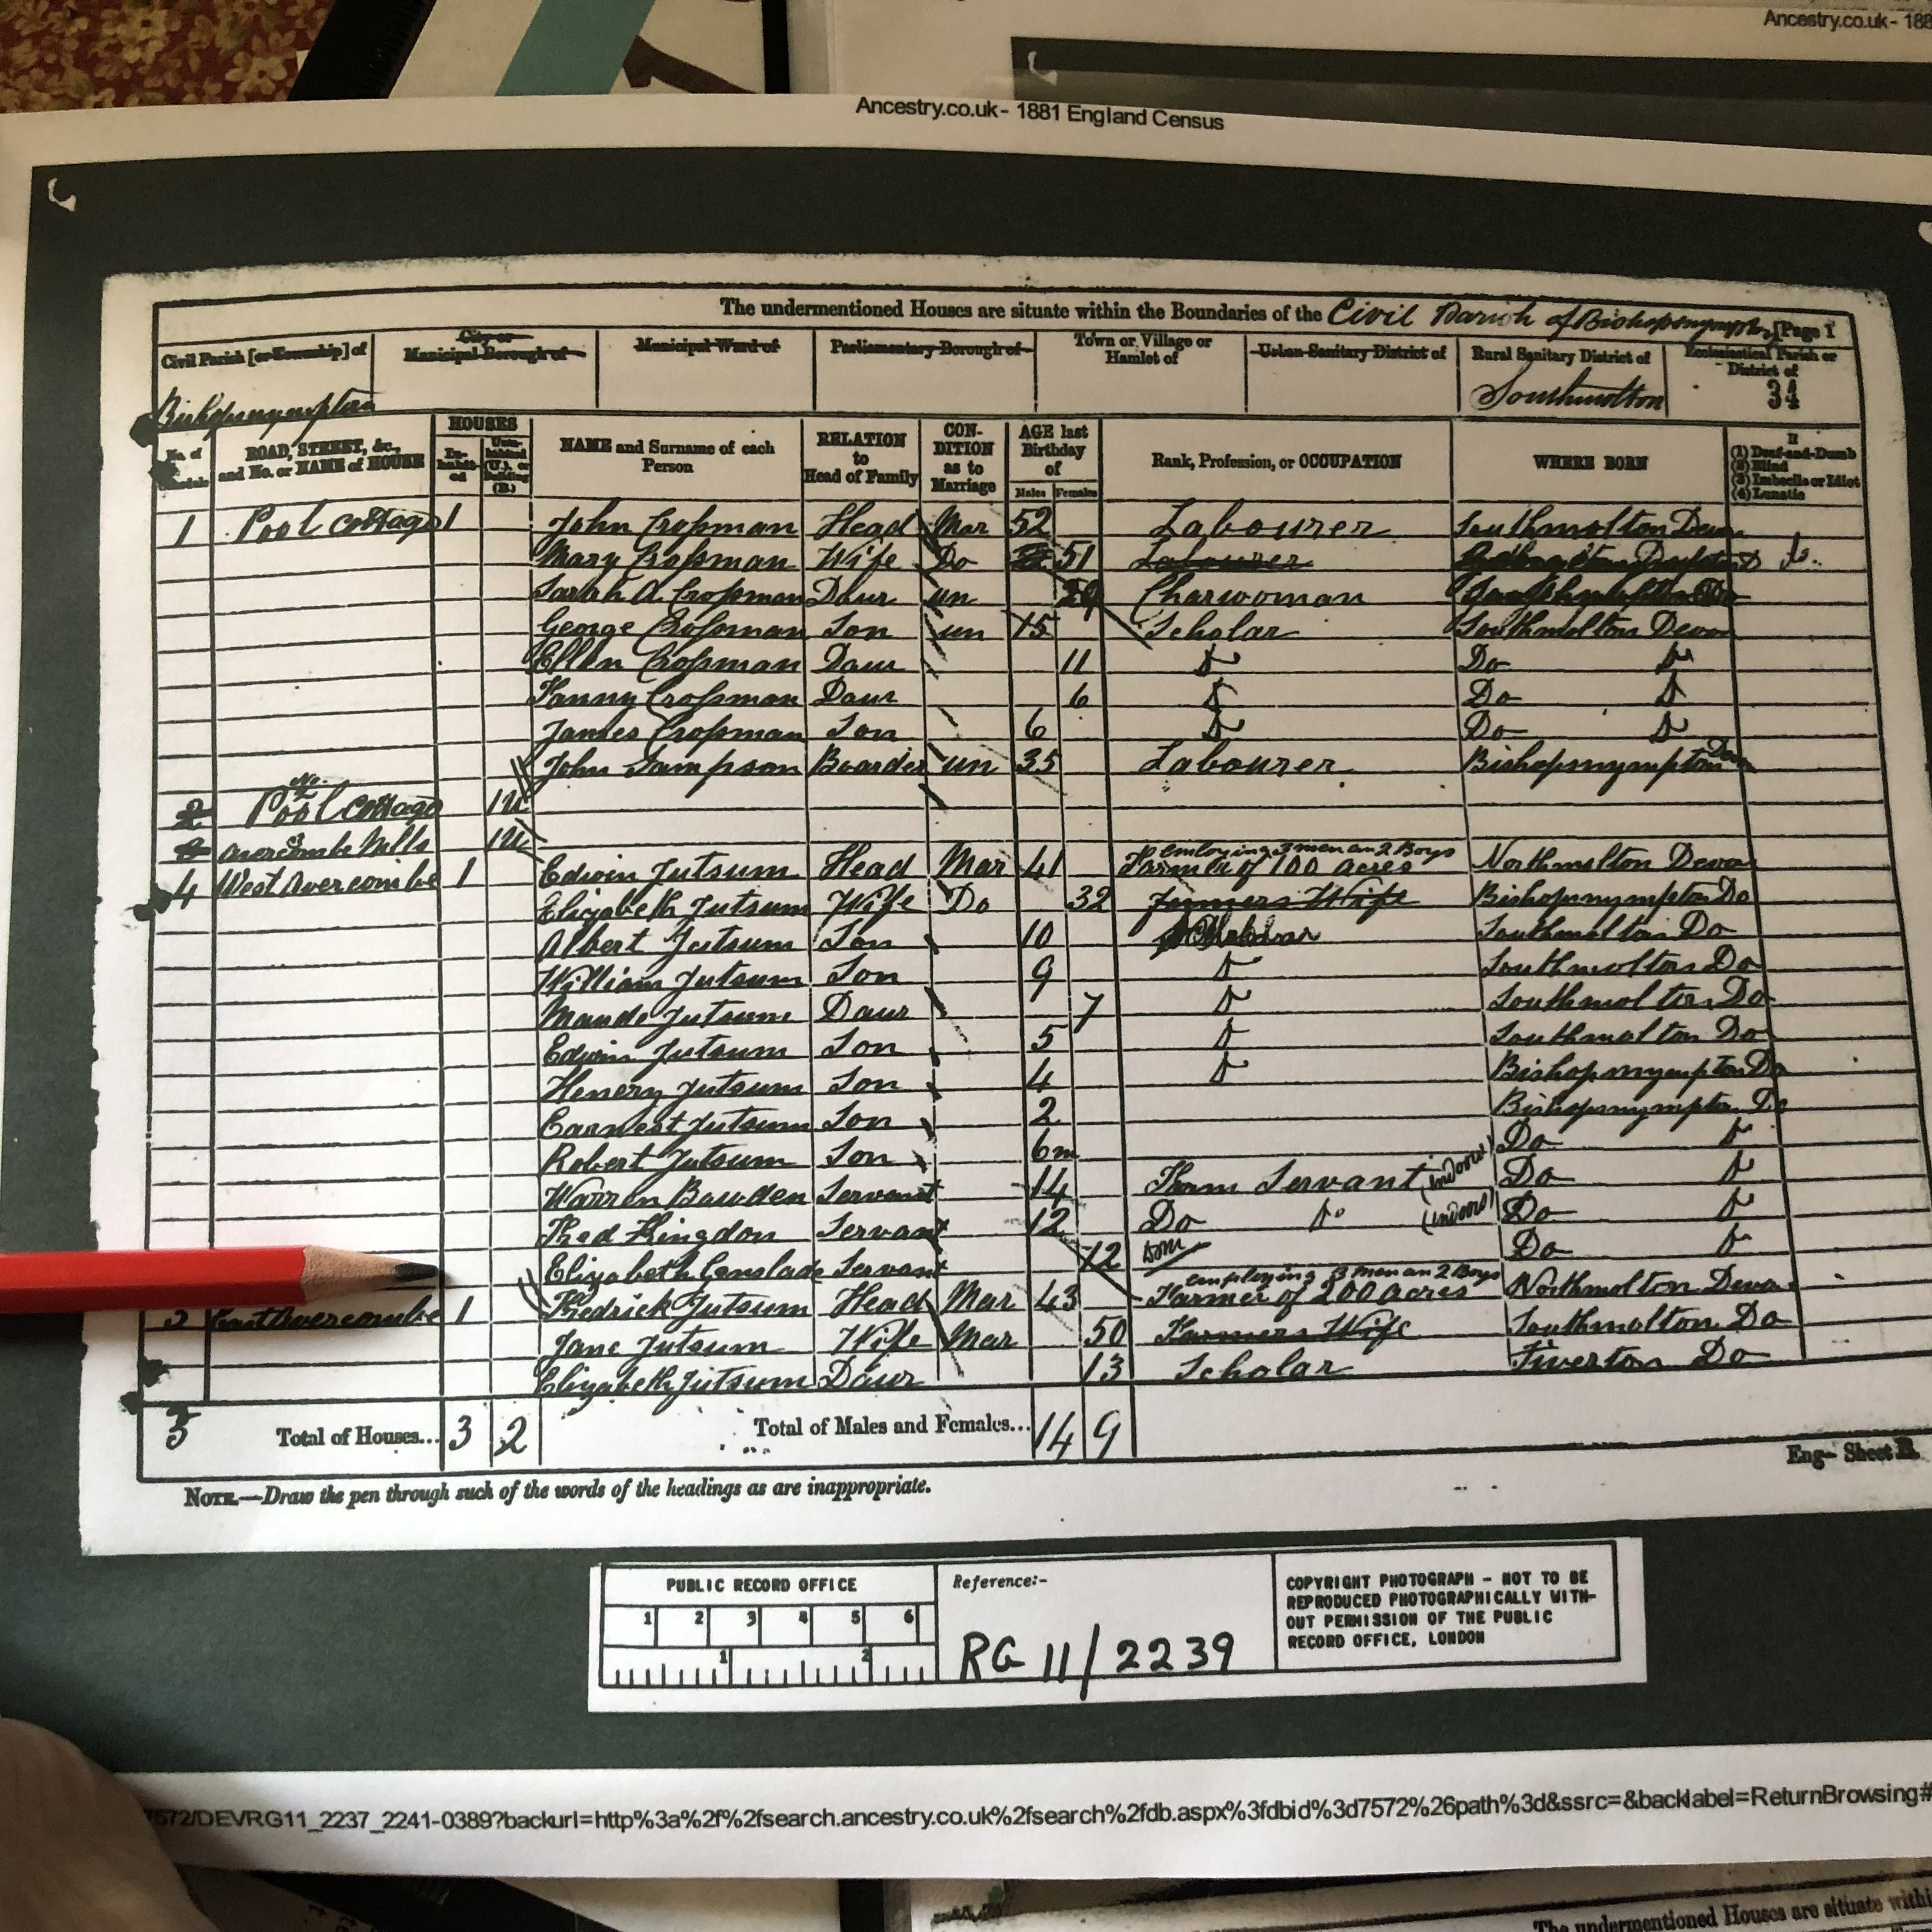 Ancestry.co.uk - 188
Ancestry.co.uk - 1881 England Census
The undermentioned Houses are situate within the Boundaries of the Civil Parish of Bishopsnympton [Page 1
Civil Parish [or Township] of
City or Municipal Borough of
Municipal Ward of
Parliamentary Borough of
Town or Village or Hamlet of
Urban Sanitary District of
Rural Sanitary District of
Ecclesiastical Parish or District of
Bishopsnympton Southmolton 34
No. of ROAD, STREET, &c., and No. or NAME of HOUSE
HOUSES In-habit-ed Unin-habited (U.), or Building (B.)
NAME and Surname of each Person
RELATION to Head of Family
CON-DITION as to Marriage
AGE last Birthday of Males Females
Rank, Profession, or OCCUPATION
WHERE BORN
If (1) Deaf-and-Dumb (2) Blind (3) Imbecile or Idiot (4) Lunatic
1 Pool Cottage 1 John Crossman Head Mar 52 Labourer Southmolton Devon
Mary Crossman Wife Do 51 Labourer
Sarah A. Crossman Daur un 29 Charwoman
George Crossman Son un 15 Scholar Southmolton Devon
Ellen Crossman Daur 11 Do Do Do
Fanny Crossman Daur 6 Do Do Do
James Crossman Son 6 Do Do Do
John Sampson Boarder un 35 Labourer Bishopsnympton Devon
2 Pool Cottage 1U
Avercombe Mills 1U
4 West Avercombe 1 Edwin Jutsum Head Mar 41 Farmer of 100 acres employing 3 men an 2 Boys Northmolton Devon
Elizabeth Jutsum Wife Do 32 Farmers Wife Bishopsnympton Do
Albert Jutsum Son 10 Scholar Southmolton Do
William Jutsum Son 9 Do Southmolton Do
Maude Jutsum Daur 7 Do Southmolton Do
Edwin Jutsum Son 5 Do Southmolton Do
Henery Jutsum Son 4 Do Bishopsnympton Do
Earnest Jutsum Son 2 Bishopsnympton Do
Robert Jutsum Son 6m Do Do
Warren Bawden Servant 14 Farm Servant (indoors) Do Do
Fred Kingdon Servant 12 Do Do (indoors) Do Do
Elizabeth Genslade Servant 12 Dom Do Do
5 East Avercombe 1 Fredrick Jutsum Head Mar 43 Farmer of 200 acres employing 3 men an 2 Boys Northmolton Devon
Jane Jutsum Wife Mar 50 Farmers Wife Southmolton Do
Elizabeth Jutsum Daur 13 Scholar Tiverton Do
3 Total of Houses... 3 2 Total of Males and Females... 14 9
Eng— Sheet B.
NOTE.—Draw the pen through such of the words of the headings as are inappropriate.
PUBLIC RECORD OFFICE
1 2 3 4 5 6
1 2
Reference:-
RG 11/2239
COPYRIGHT PHOTOGRAPH - NOT TO BE
REPRODUCED PHOTOGRAPHICALLY WITH-
OUT PERMISSION OF THE PUBLIC
RECORD OFFICE, LONDON
7572/DEVRG11_2237_2241-0389?backurl=http%3a%2f%2fsearch.ancestry.co.uk%2fsearch%2fdb.aspx%3fdbid%3d7572%26path%3d&ssrc=&backlabel=ReturnBrowsing#
The undermentioned Houses are situate withi